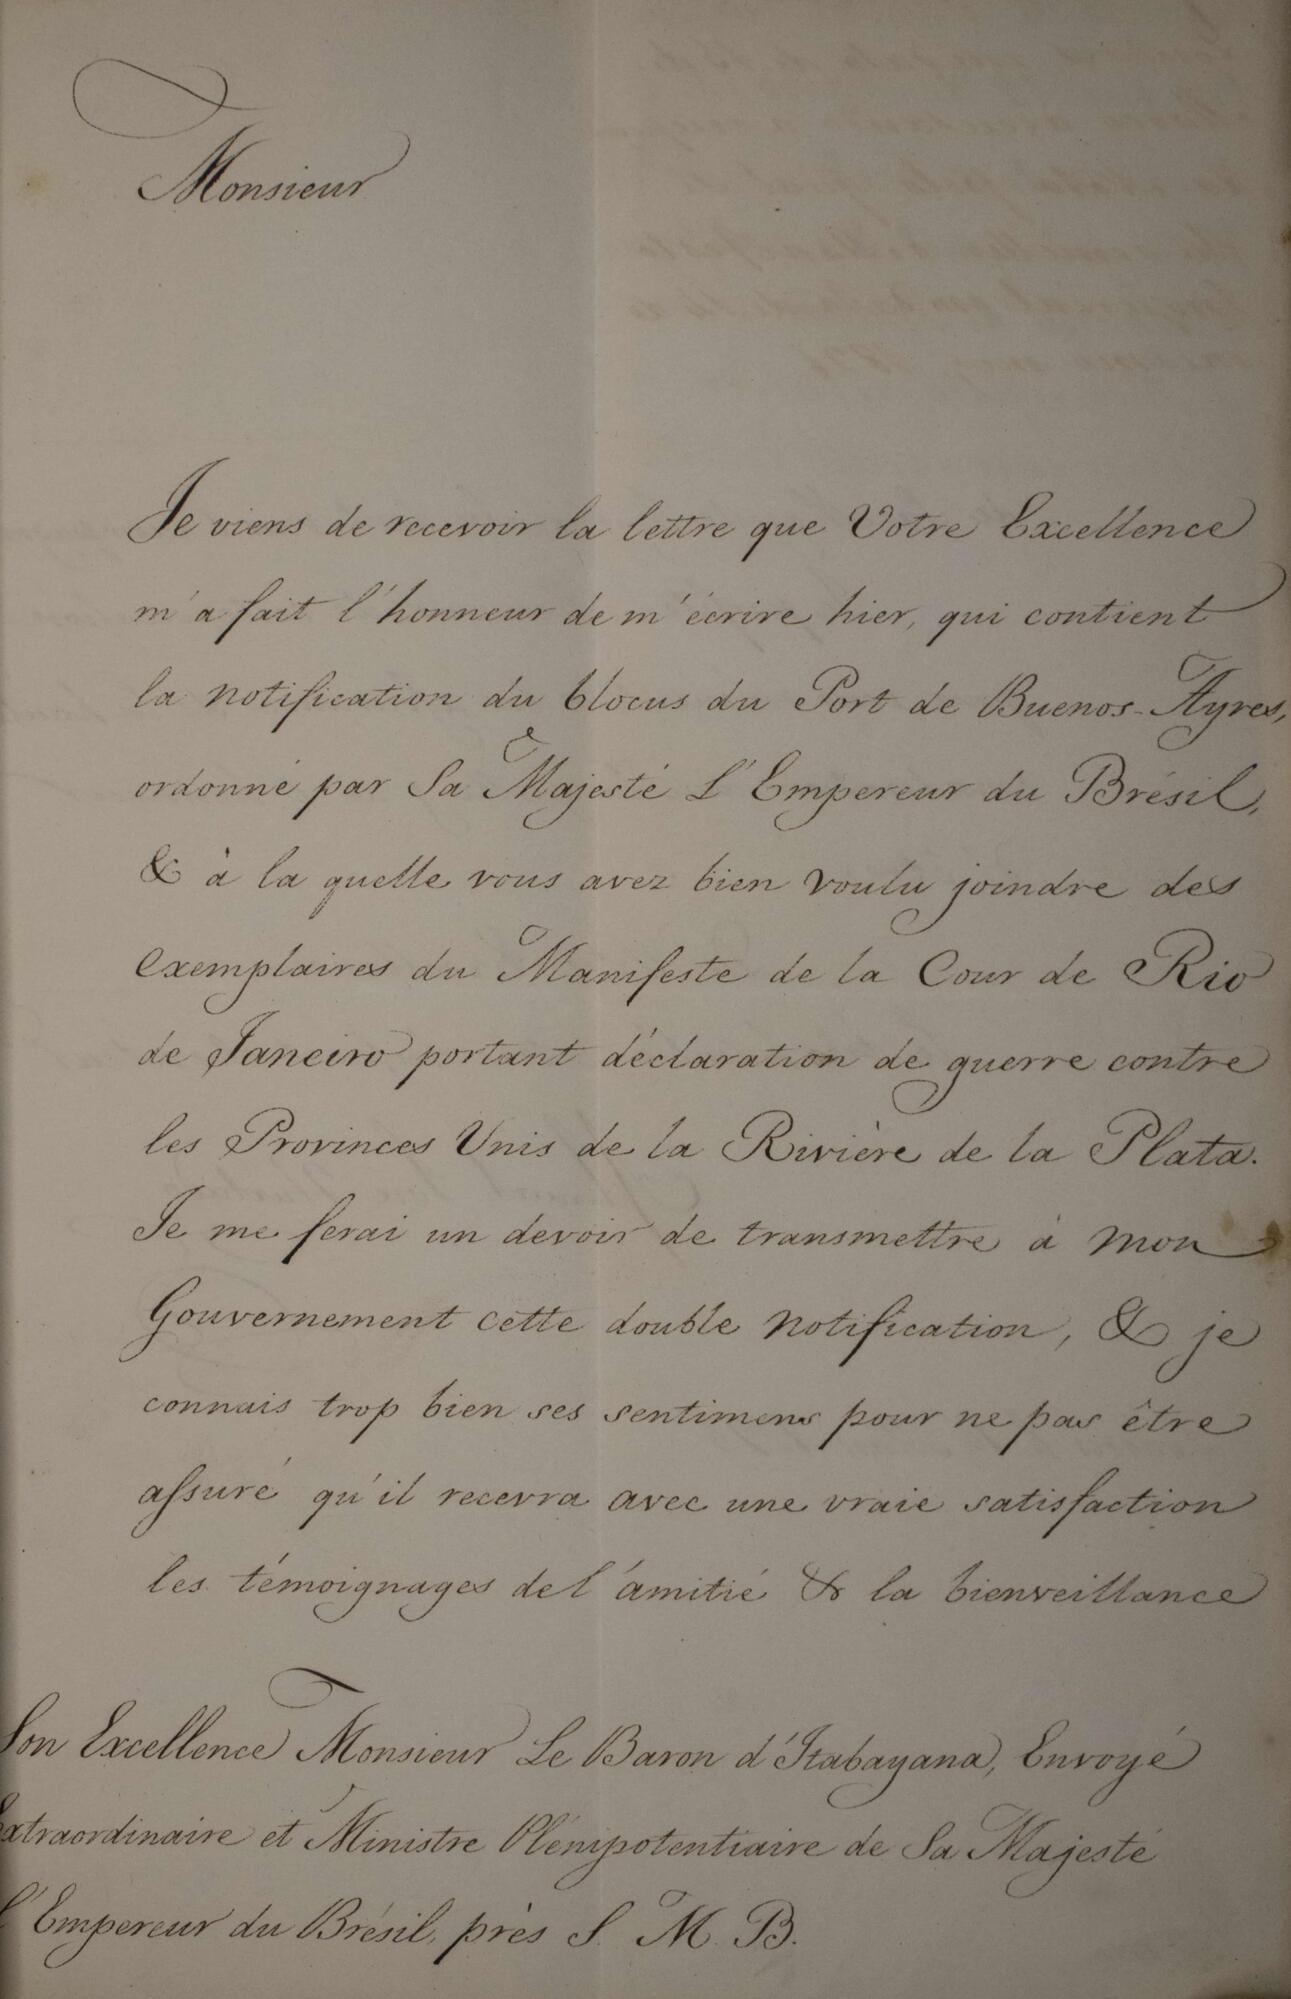 Monsieur
Je viens de recevoir la lettre que Votre Excellence
m'a fait l'honneur de m'écrire hier, qui contient
la notification du blocus du Port de Buenos-Ayres,
ordonné par Sa Majesté L'Empereur du Brésil,
& à la quelle vous avez bien voulu joindre des
exemplaires du Manifeste de la Cour de Rio
de Janeiro portant déclaration de guerre contre
les Provinces Unis de la Rivière de la Plata.
Je me ferai un devoir de transmettre à mon
Gouvernement cette double notification, & je
connais trop bien ses sentimens pour ne pas être
assuré qu'il recevra avec une vraie satisfaction
les témoignages de l'amitié & la bienveillance
Son Excellence Monsieur Le Baron d'Itabayana, Envoyé
Extraordinaire et Ministre Plénipotentiaire de Sa Majesté
l'Empereur du Brésil, près S. M. B.